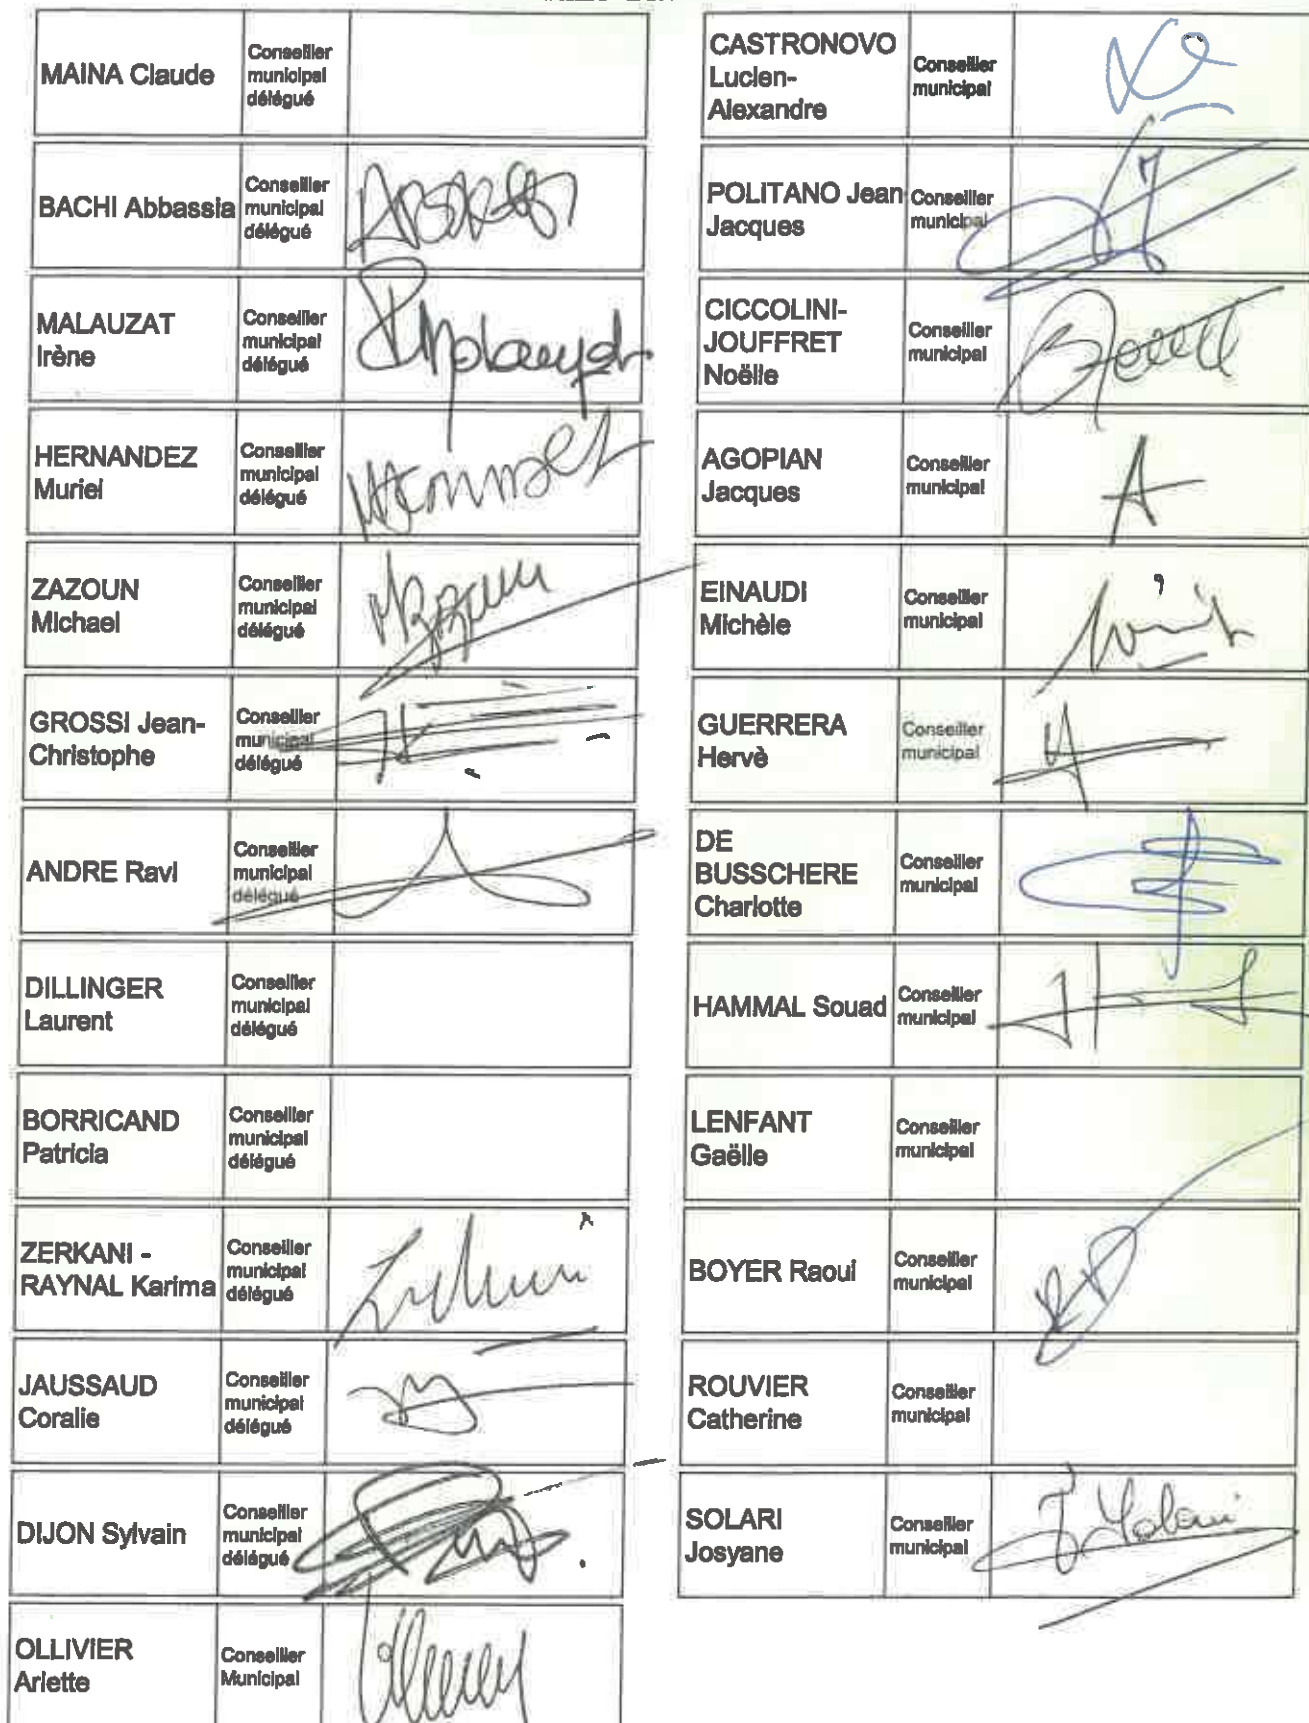 MAINA Claude
Conseiller
municipal
délégué
BACHI Abbassia
Conseiller
municipal
délégué
MALAUZAT
Irène
Conseiller
municipal
délégué
HERNANDEZ
Muriel
Conseiller
municipal
délégué
ZAZOUN
Michael
Conseiller
municipal
délégué
GROSSI Jean-
Christophe
Conseiller
municipal
délégué
ANDRE Ravi
Conseiller
municipal
délégué
DILLINGER
Laurent
Conseiller
municipal
délégué
BORRICAND
Patricia
Conseiller
municipal
délégué
ZERKANI -
RAYNAL Karima
Conseiller
municipal
délégué
JAUSSAUD
Coralie
Conseiller
municipal
délégué
DIJON Sylvain
Conseiller
municipal
délégué
OLLIVIER
Arlette
Conseiller
Municipal
CASTRONOVO
Lucien-
Alexandre
Conseiller
municipal
POLITANO Jean
Jacques
Conseiller
municipal
CICCOLINI-
JOUFFRET
Noëlle
Conseiller
municipal
AGOPIAN
Jacques
Conseiller
municipal
A
EINAUDI
Michèle
Conseiller
municipal
GUERRERA
Hervè
Conseiller
municipal
DE
BUSSCHERE
Charlotte
Conseiller
municipal
HAMMAL Souad
Conseiller
municipal
LENFANT
Gaëlle
Conseiller
municipal
BOYER Raoul
Conseiller
municipal
ROUVIER
Catherine
Conseiller
municipal
SOLARI
Josyane
Conseiller
municipal
J. Solari